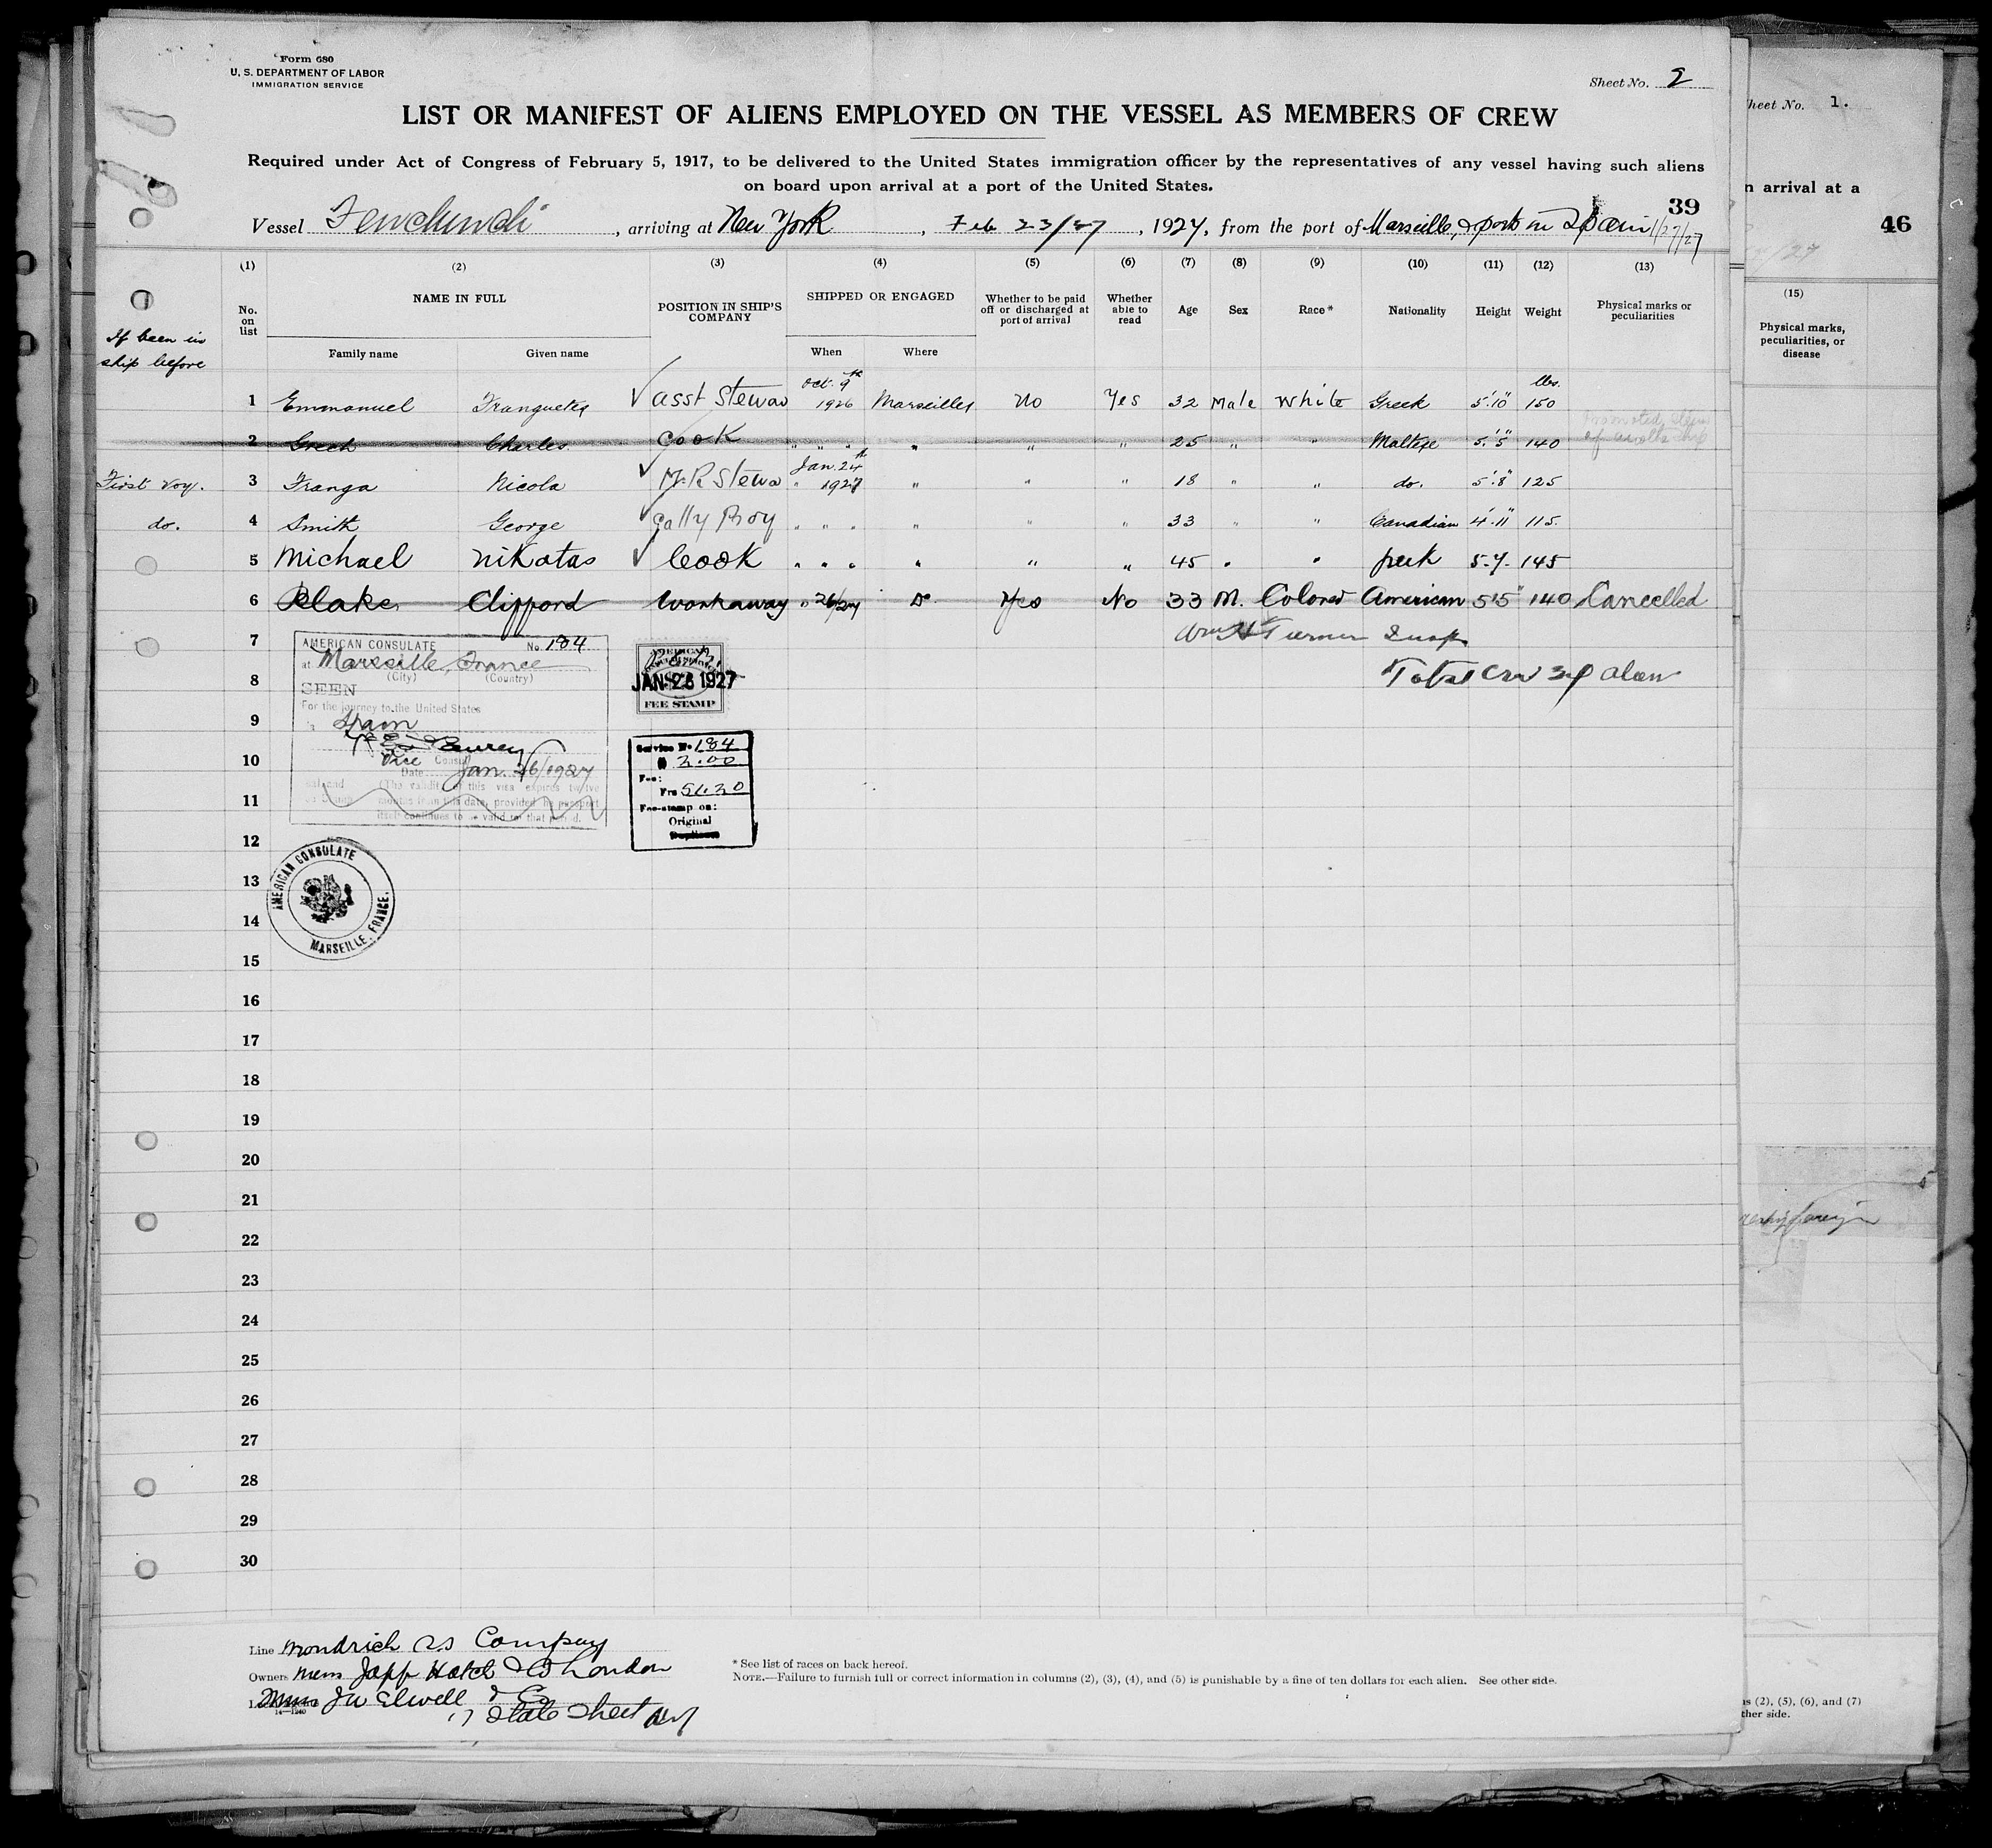 Form 680
U. S. DEPARTMENT OF LABOR
IMMIGRATION SERVICE
Sheet No. 2
LIST OR MANIFEST OF ALIENS EMPLOYED ON THE VESSEL AS MEMBERS OF CREW
Required under Act of Congress of February 5, 1917, to be delivered to the United States immigration officer by the representatives of any vessel having such aliens
on board upon arrival at a port of the United States.
39
Vessel , arriving at New York , Feb 23/27 , 1927, from the port of Marseille, & ports in Spain 1/27/27
(1) (2) (3) (4) (5) (6) (7) (8) (9) (10) (11) (12) (13)
No. on list NAME IN FULL POSITION IN SHIP'S COMPANY SHIPPED OR ENGAGED Whether to be paid off or discharged at port of arrival Whether able to read Age Sex Race* Nationality Height Weight Physical marks or peculiarities
If been in ship before
Family name Given name When Where
1 Emmanuel Franguetes asst Steward Oct. 9th 1926 Marseilles No Yes 32 Male White Greek 5'.10" lbs. 150
2 Grech Charles. Cook " " " " " " 25 " " Maltese 5'.5" 140
First Voy. 3 Franga Nicola M.R. Stewa Jan. 24th " 1927 " " " 18 " " do. 5'.8" 125
do. 4 Smith George Gally Boy " " " " " " 33 " " Canadian 4'.11" 115.
5 Michael Nikotas Cook " " " " " " 45 " " Greek 5.7. 145
6 Blake Clifford Workaway " 26/27 Do Yes No 33 M. Colored American 5'5" 140 Cancelled
7
Wm H Turner Insp
8
Total crew 39 alien
9
10
11
12
13
14
15
16
17
18
19
20
21
22
23
24
25
26
27
28
29
30
AMERICAN CONSULATE No. 184
at Marseille, France
(City) (Country)
SEEN
For the journey to the United States
Spain
Vice Consul
Date Jan. 26/1927
(The validity of this visa expires twelve
months from this date, provided the passport
itself continues to be valid for that period.
AMERICAN
JAN 26 1927
FEE STAMP
Service No 184
$ 2.00
Fee:
Frs 51.20
Fee-stamp on:
Original
Duplicate
AMERICAN CONSULATE
MARSEILLE, FRANCE.
Line SS Company
Owners Mess Japp Hatch & Co London
J W Elwell & Co
17 State Street N Y
14—1240
* See list of races on back hereof.
NOTE.—Failure to furnish full or correct information in columns (2), (3), (4), and (5) is punishable by a fine of ten dollars for each alien. See other side.
heet No. 1.
n arrival at a
46
(15)
Physical marks,
peculiarities, or
disease
ns (2), (5), (6), and (7)
ther side.